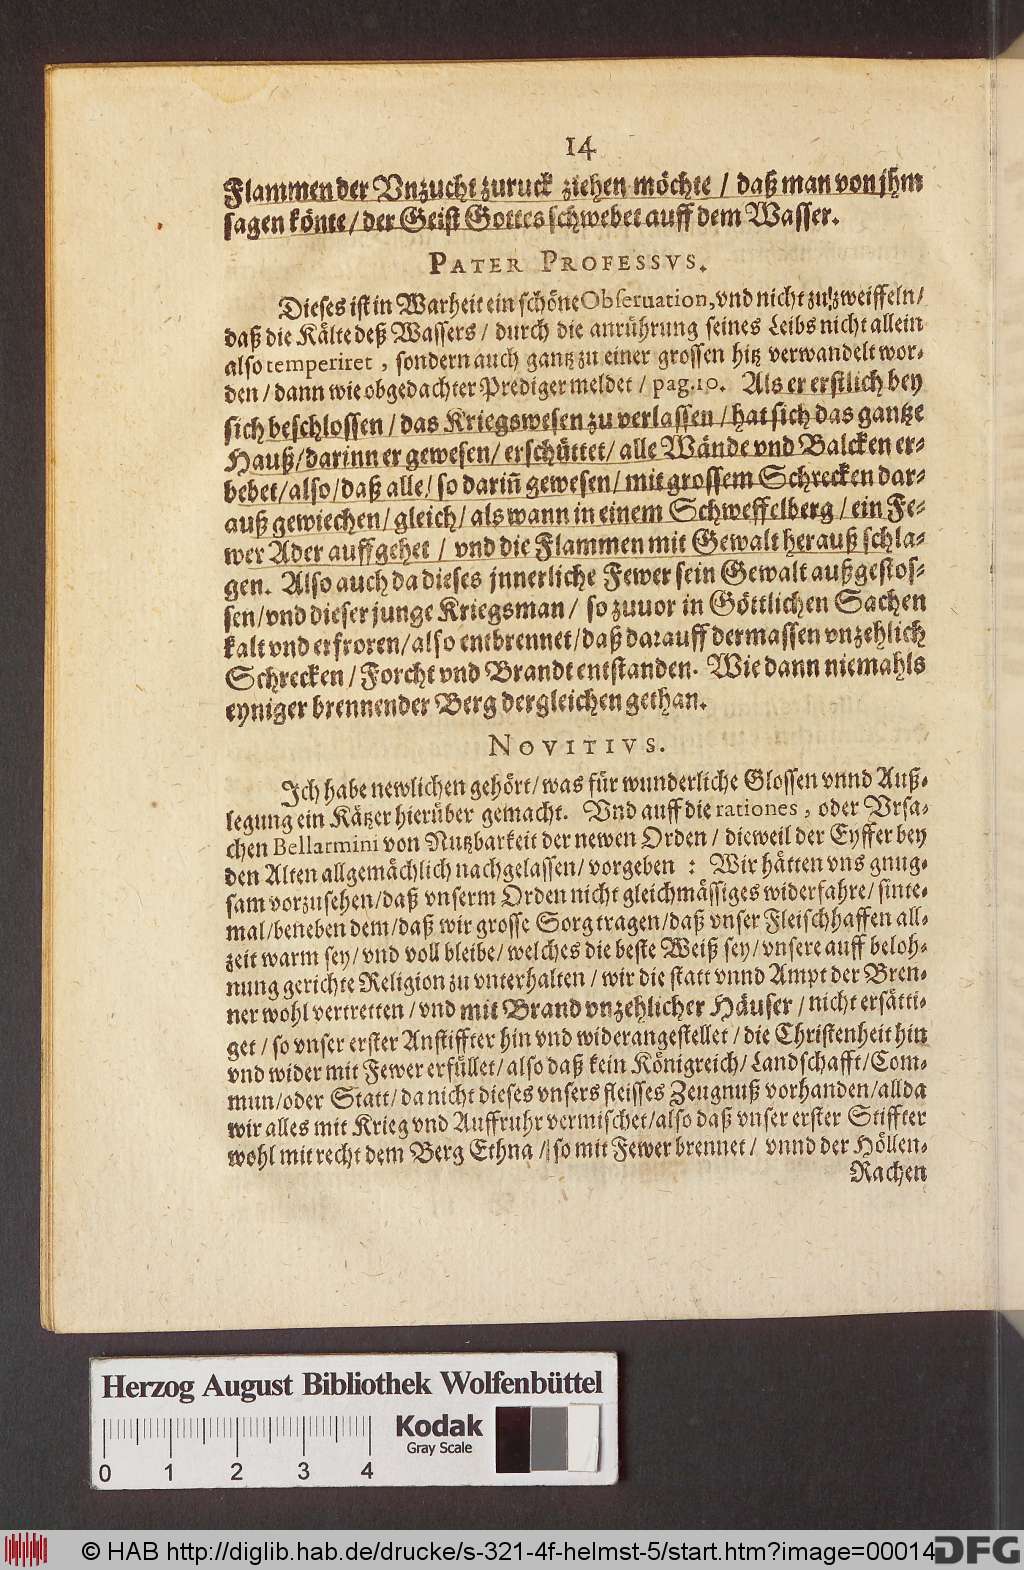 14
Flammen der Vnzucht zuruck ziehen möchte / daß man von jhm
sagen könte / der Geist Gottes schwebet auff dem Wasser.
PATER PROFESSVS.
Dieses ist in Warheit ein schöne Obseruation, vnd nicht zu zweiffeln /
daß die Kälte deß Wassers / durch die anrührung seines Leibs nicht allein
also temperiret , sondern auch gantz zu einer grossen hitz verwandelt wor-
den / dann wie obgedachter Prediger meldet / pag. 10. Als er erstlich bey
sich beschlossen / das Kriegswesen zu verlassen / hat sich das gantze
Hauß / darinn er gewesen / erschüttet / alle Wände vnd Balcken er-
bebet / also / daß alle / so dariñ gewesen / mit grossem Schrecken dar-
auß gewiechen / gleich / als wann in einem Schweffelberg / ein Fe-
wer Ader auffgehet / vnd die Flammen mit Gewalt herauß schla-
gen. Also auch da dieses jnnerliche Fewer sein Gewalt außgestos-
sen / vnd dieser junge Kriegsman / so zuuor in Göttlichen Sachen
kalt vnd erfroren / also entbrennet / daß darauff dermassen vnzehlich
Schrecken / Forcht vnd Brandt entstanden. Wie dann niemahls
eyniger brennender Berg dergleichen gethan.
NOVITIVS.
Ich habe newlichen gehört / was für wunderliche Glossen vnnd Auß-
legung ein Kätzer hierüber gemacht. Vnd auff die rationes , oder Vrsa-
chen Bellarmini von Nutzbarkeit der newen Orden / dieweil der Eyffer bey
den Alten allgemächlich nachgelassen / vorgeben : Wir hätten vns gnug-
sam vorzusehen / daß vnserm Orden nicht gleichmässiges widerfahre / sinte-
mal / beneben dem / daß wir grosse Sorg tragen / daß vnser Fleischhaffen all-
zeit warm sey / vnd voll bleibe / welches die beste Weiß sey / vnsere auff beloh-
nung gerichte Religion zu vnterhalten / wir die statt vnnd Ampt der Bren-
ner wohl vertretten / vnd mit Brand vnzehlicher Häuser / nicht ersätti-
get / so vnser erster Anstiffter hin vnd wider angestellet / die Christenheit hin
vnd wider mit Fewer erfüllet / also daß kein Königreich / Landschafft / Com-
mun / oder Statt / da nicht dieses vnsers fleisses Zeugnuß vorhanden / allda
wir alles mit Krieg vnd Auffruhr vermischet / also daß vnser erster Stiffter
wohl mit recht dem Berg Ethna / so mit Fewer brennet / vnnd der Höllen-
Rachen
Herzog August Bibliothek Wolfenbüttel
Kodak
Gray Scale
0 1 2 3 4
© HAB http://diglib.hab.de/drucke/s-321-4f-helmst-5/start.htm?image=00014
DFG